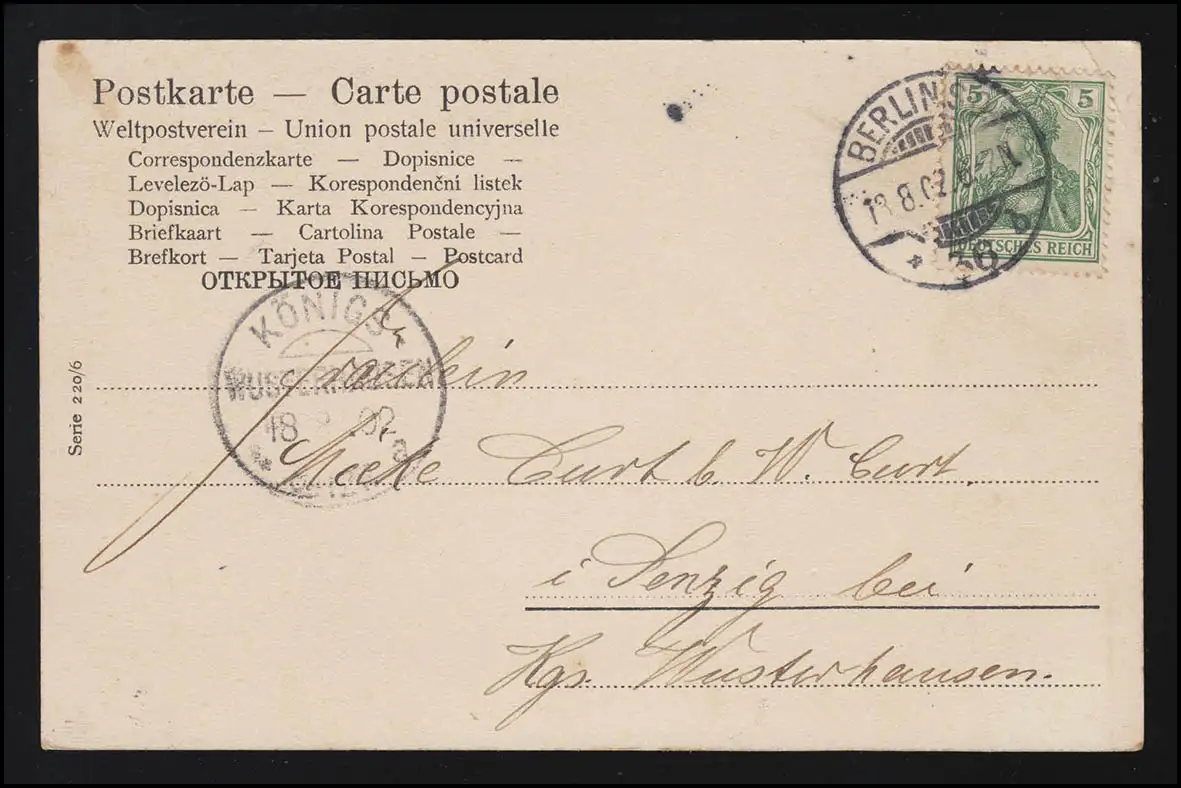 Postkarte — Carte postale
Weltpostverein – Union postale universelle
Correspondenzkarte — Dopisnice —
Levelező-Lap — Korespondenční listek
Dopisnica — Karta Korespondencyjna
Briefkaart — Cartolina Postale —
Brefkort — Tarjeta Postal — Postcard
ОТКРЫТОЕ ПИСЬМО
BERLIN S
18.8.02
36
b
5 5
DEUTSCHES REICH
KÖNIGS
WUSTERHAUSEN
18 02
a
Serie 220/6
Fräulein
Curt b. W. Curt
i Senzig bei
Kgs. Wusterhausen.